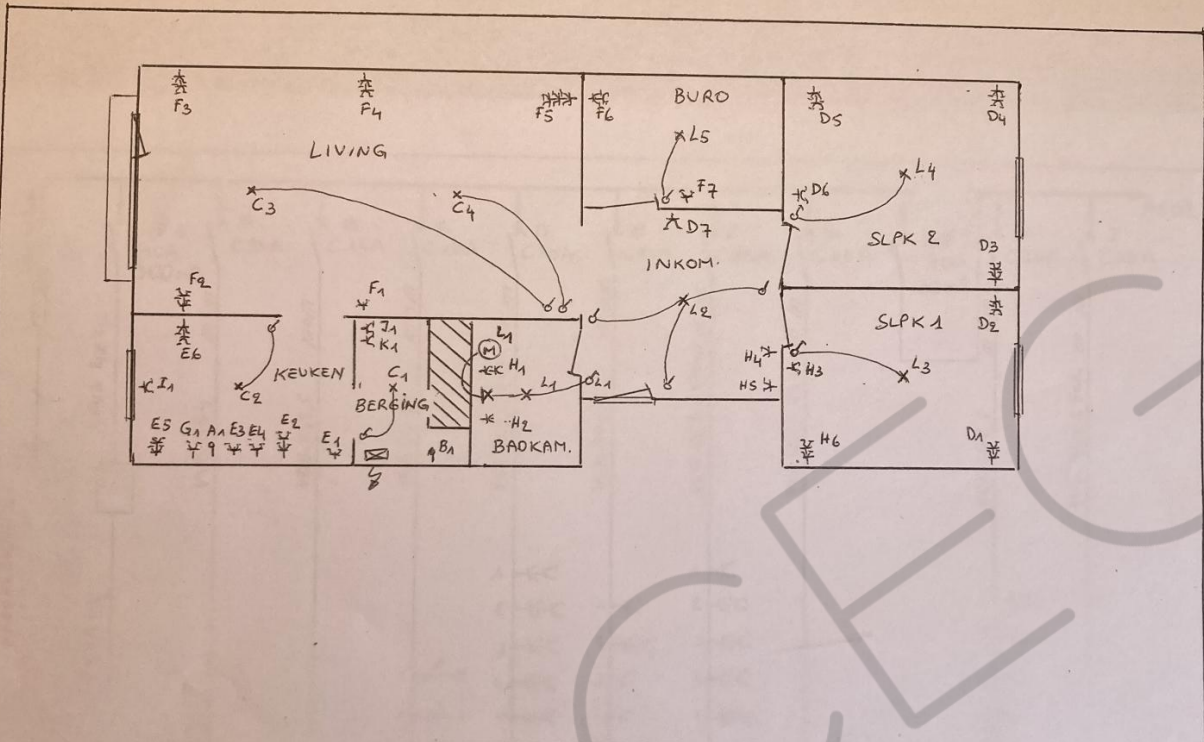 F3
F4
F5
F6
BURO
D5
D4
LIVING
L5
L4
C3
C4
F7
D6
D7
SLPK 2
D3
INKOM.
F2
F1
L2
SLPK 1
D2
E6
J1
K1
L1
M
H1
H4
H3
L3
I1
C2
KEUKEN
C1
BERGING
L1
L1
H5
H2
E5
G1
A1
E3
E4
E2
E1
B1
BADKAM.
H6
D1
CEG